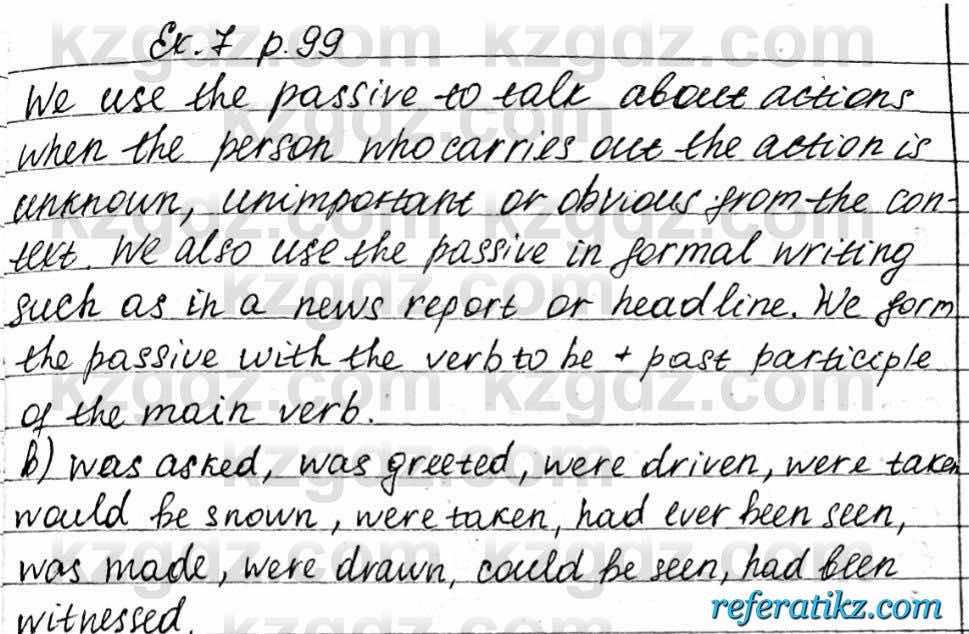 Ex. 7 p. 99
We use the passive to talk about actions
when the person who carries out the action is
unknown, unimportant or obvious from the con-
text. We also use the passive in formal writing
such as in a news report or headline. We form
the passive with the verb to be + past participle
of the main verb.
b) was asked, was greeted, were driven, were taken
would be snown, were taken, had ever been seen,
was made, were drawn, could be seen, had been
witnessed.
referatikz.com
kzgdz.com